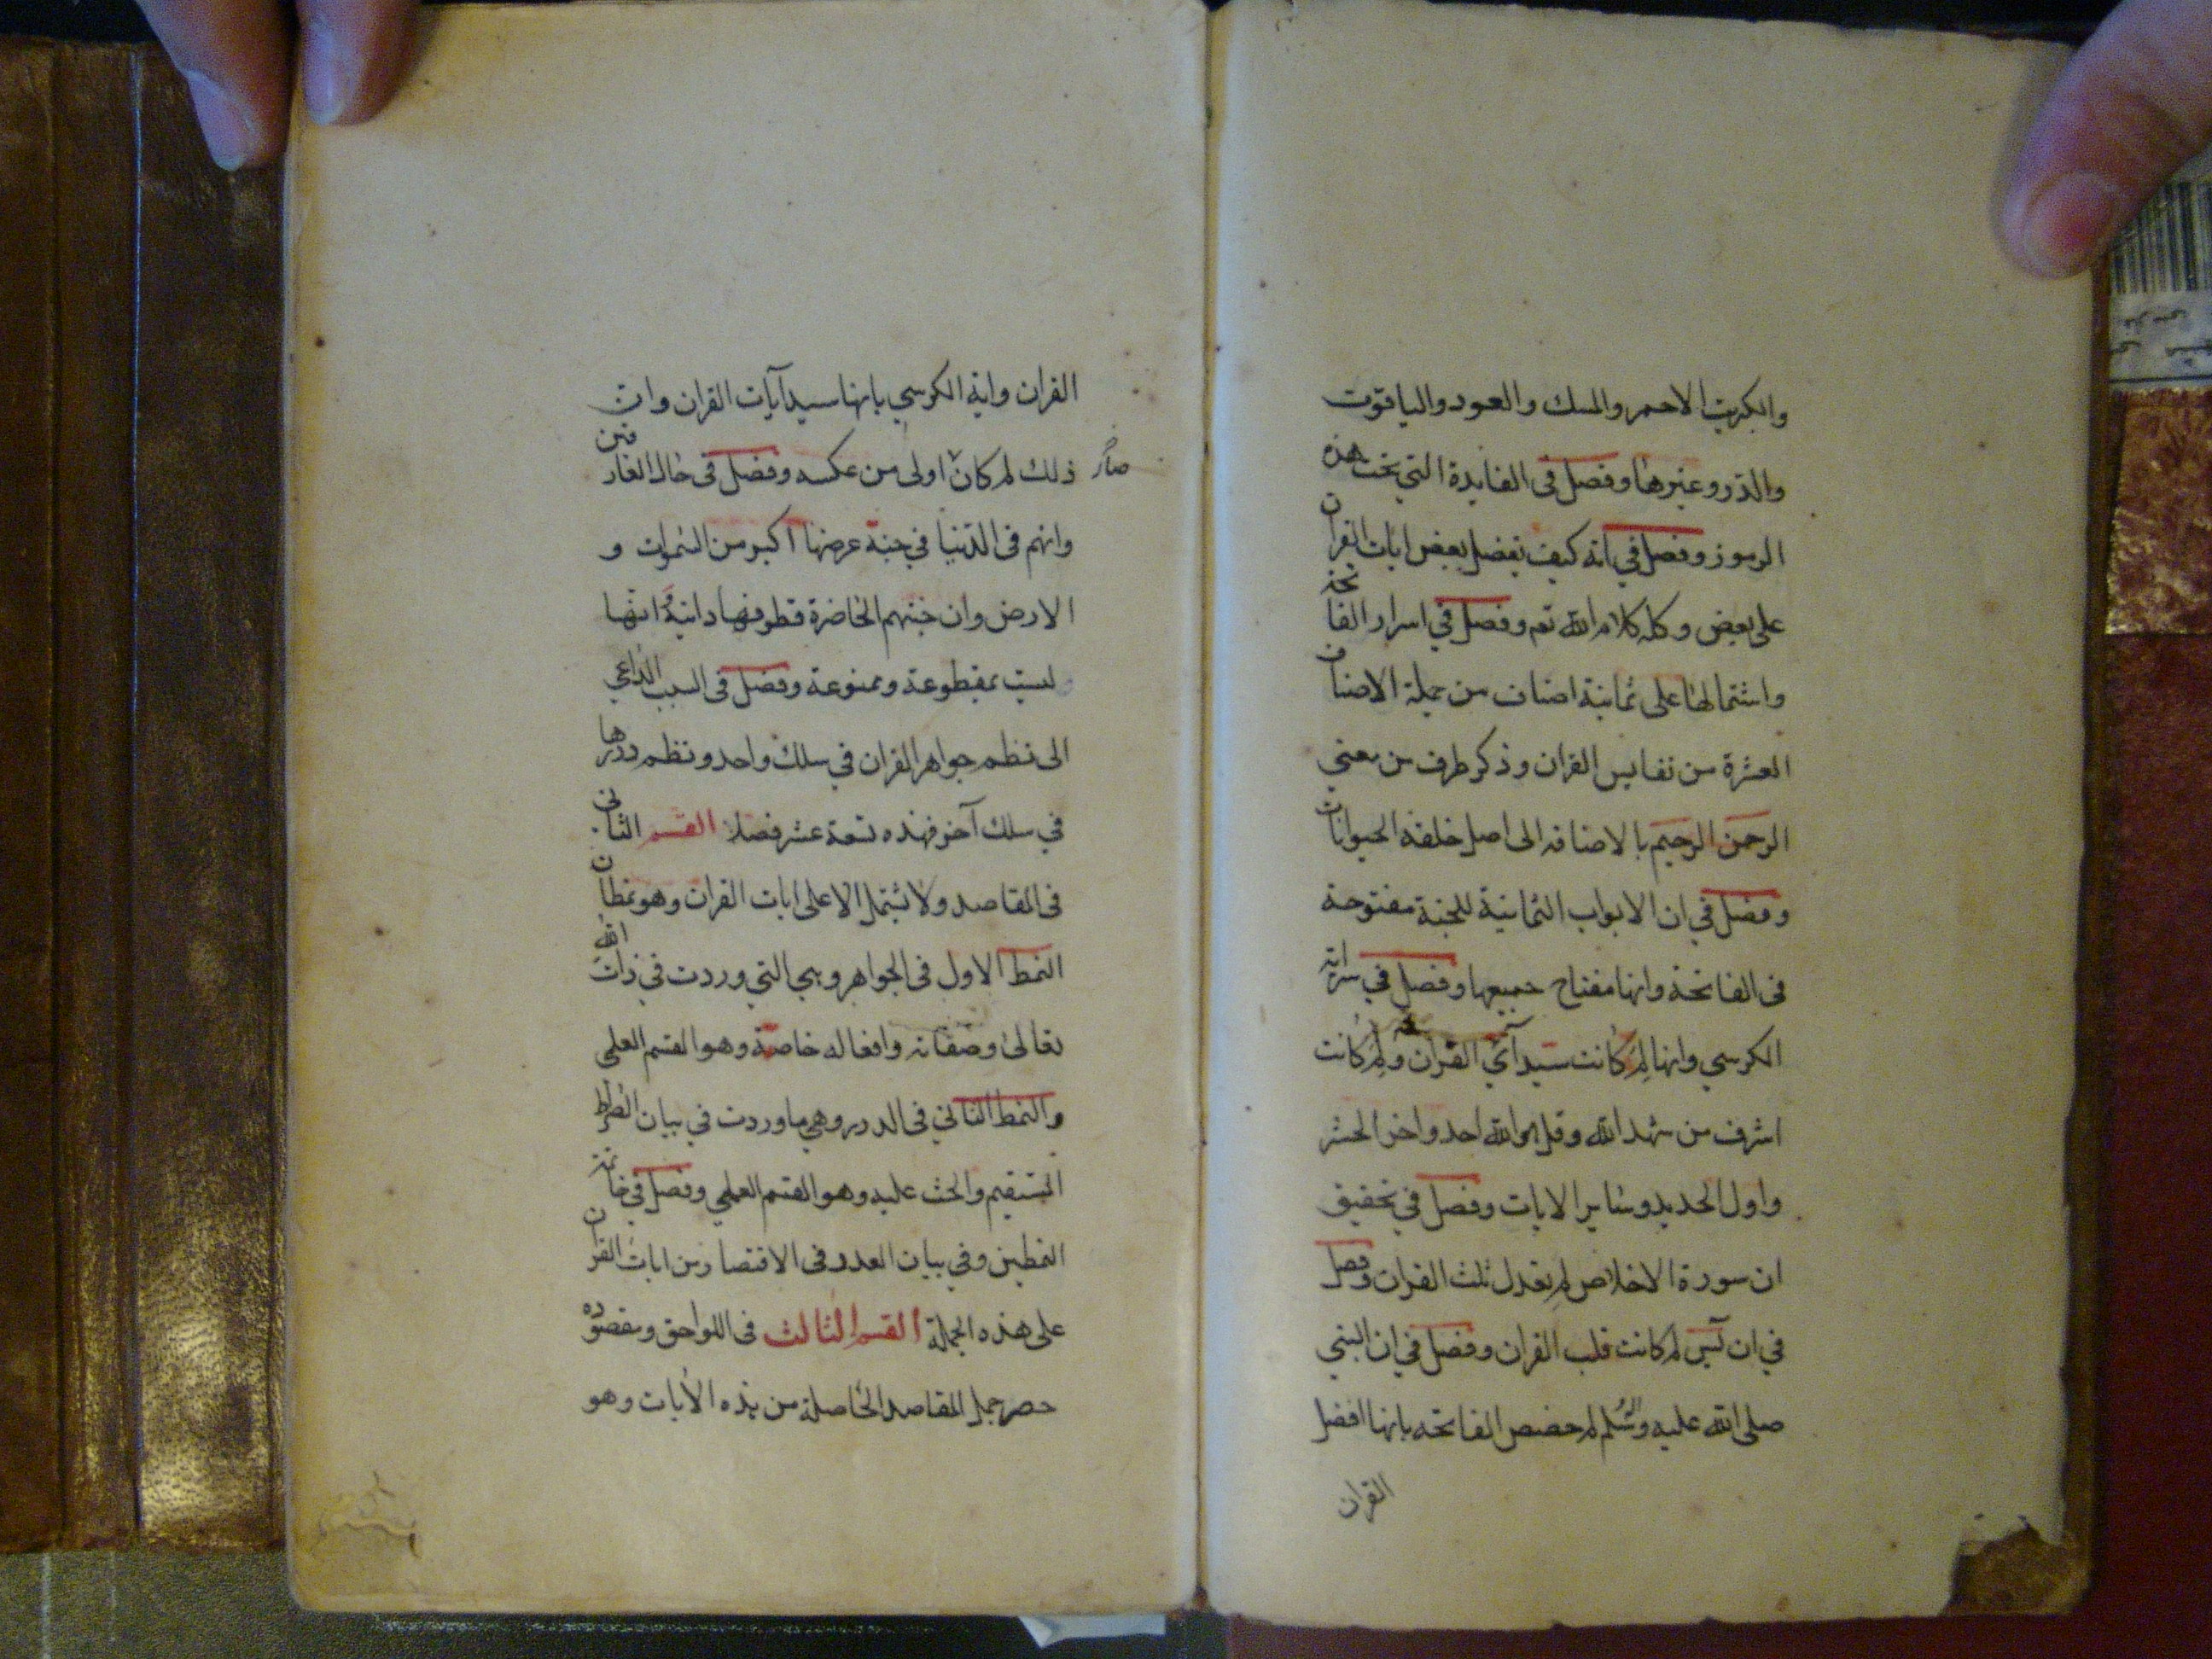 والكبريت الاحمر والمسك والعود والياقوت
والدّر وغيرها وفصل فى الفايدة التي تحت هذه
الرموز وفصل في انه كيف يفضل بعض ايات القران
على بعض وكله كلام الله تع وفصل في اسرار الفاتحة
واشتمالها على ثمانية اصناف من جملة الاصناف
العشرة من نفايس القران وذكر طرف من معني
الرحمن الرحيم بالاضافه الى اصل خلقه الحيوانات
وفصل في ان الابواب الثمانية للجنة مفتوحة
فى الفاتحة وانها مفتاح جميعها وفصل في سر اية
الكرسي وانها لِمَ كانت سيد آي القران ولِمَ كانت
اشرف من شهد الله وقل هو الله احد واخر الحشر
واول الحديد وساير الايات وفصل في تحقيق
ان سورة الاخلاص لم يعدل ثلث القران وفصل
في ان يس لم كانت قلب القران وفصل في ان النبي
صلى الله عليه وسلم لم خصص الفاتحه بانها افضل
القران
القران واية الكرسي بانها سيد آيات القران وان
ذلك لم كان اولى من عكسه وفصل فى حال العارفين
وانهم فى الدّنيا في جنة عرضها اكبر من السموات و
الارض وان جنتهم الحاضرة قطوفها دانية وانها
ليست بمقطوعة وممنوعة وفصل فى السبب الداعي
الى نظم جواهر القران في سلك واحد ونظم دررها
في سلك آخر فهذه تسعة عشر فصلا القسم الثانى
فى المقاصد ولا يشتمل الا على ايات القران وهو نمطان
النمط الاول فى الجواهر وهي التي وردت في ذات الله
تعالى وصفاته وافعاله خاصة وهو القسم العلمي
والنمط الثاني فى الدرر وهي ما وردت في بيان الصراط
المستقيم والحث عليه وهو القسم العملي وفصل في خاتمة
النمطين وفي بيان العدد فى الاقتصار من ايات القران
على هذه الجملة القسم الثالث فى اللواحق ومقصوده
حصر جمل المقاصد الحاصلة من هذه الايات وهو